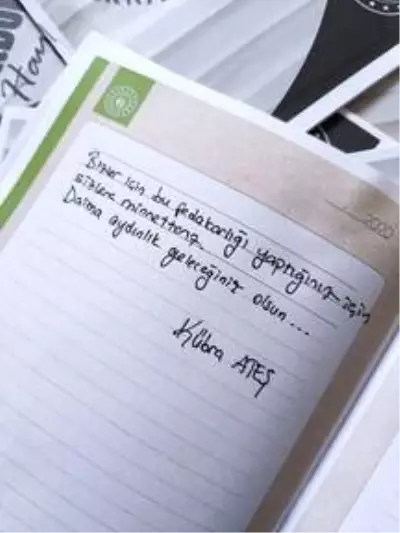 Hay
2020
Bizler için bu fedakarlığı yaptığınız için
sizlere minnettarız
Daima aydınlık geleceğiniz olsun...
Kübra ATEŞ